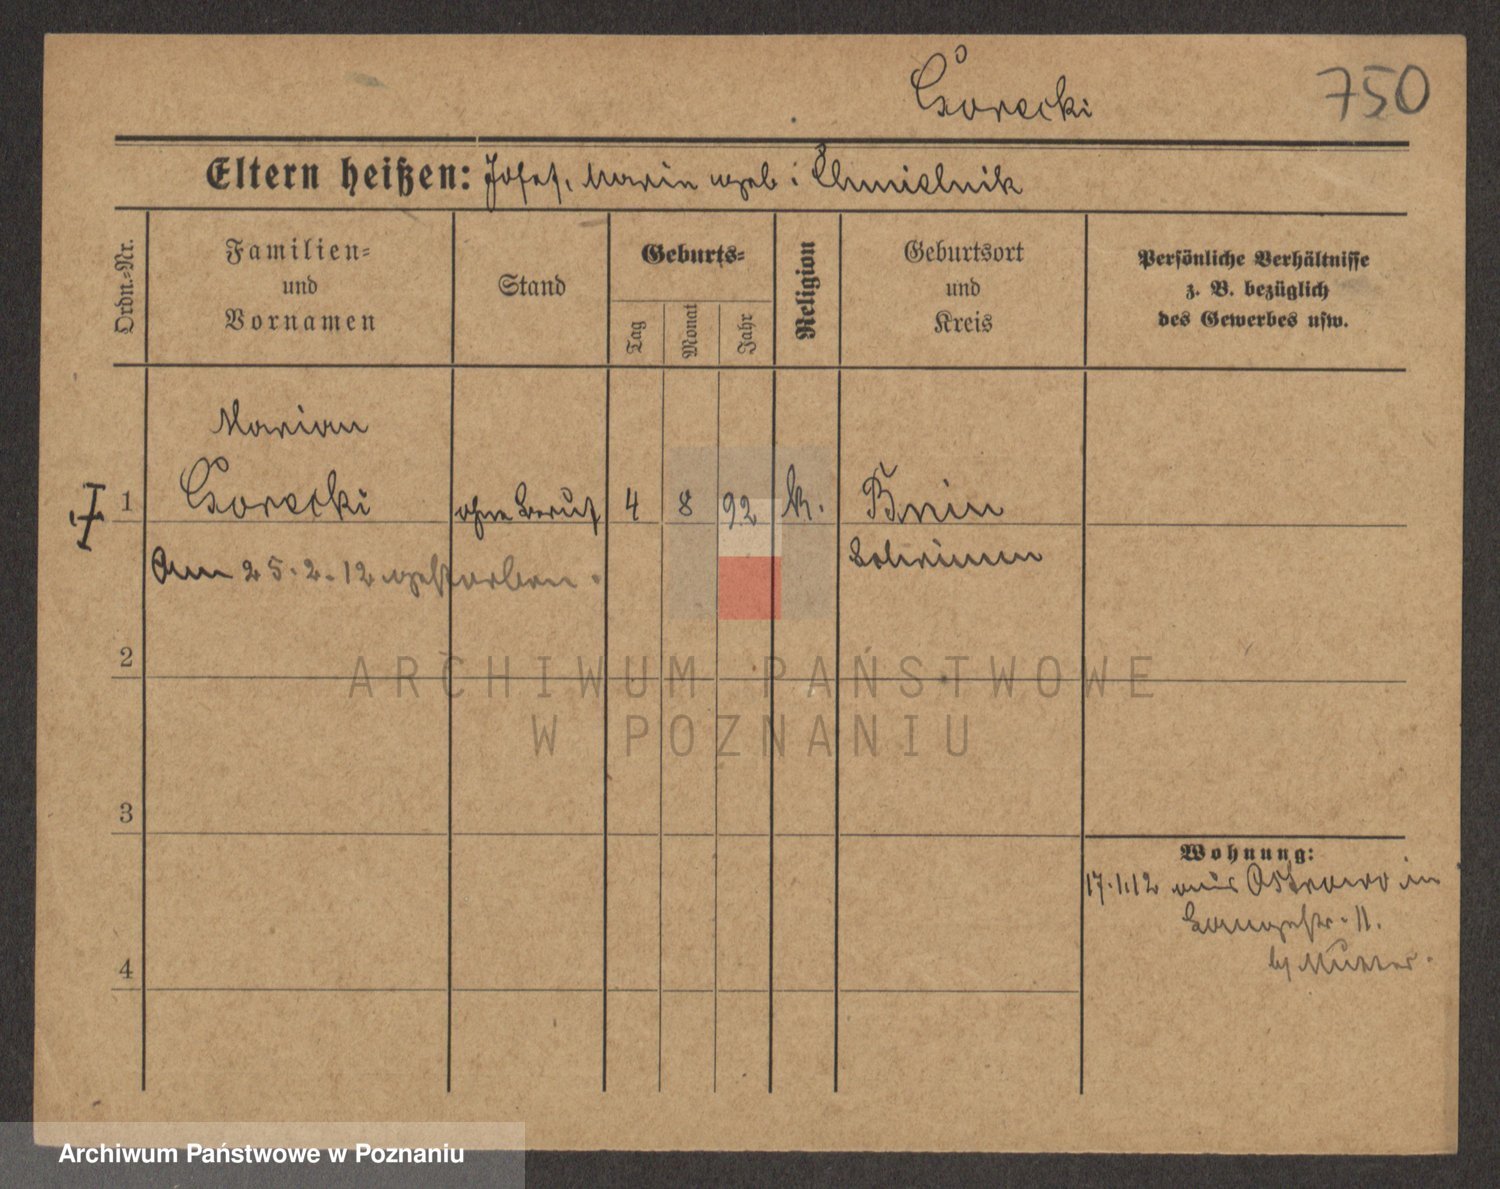 Górecki
750
Eltern heißen: Josef, Marie geb: Chmielnik
Ordn.-Nr.
Familien-
und
Vornamen
Stand
Geburts-
Tag
Monat
Jahr
Religion
Geburtsort
und
Kreis
Persönliche Verhältnisse
z. B. bezüglich
des Gewerbes usw.
Marian
1 Górecki ohne Beruf 4 8 92 k. Bnin
Schrimm
Am 25.2.12 gestorben.
2
3
4
Wohnung:
17.1.12 aus Ostrowo in
Langestr. 11.
b/ Mutter.
ARCHIWUM PAŃSTWOWE
W POZNANIU
Archiwum Państwowe w Poznaniu